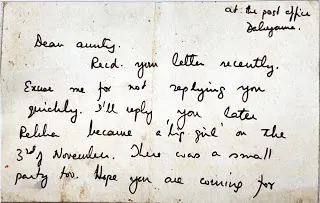 at the post office
Deluyama.
Dear aunty.
Recd. your letter recently.
Excuse me for not replying you
quickly. I'll reply you later
Rekha became a 'big girl' on the
3rd of November. There was a small
party too. Hope you are coming for